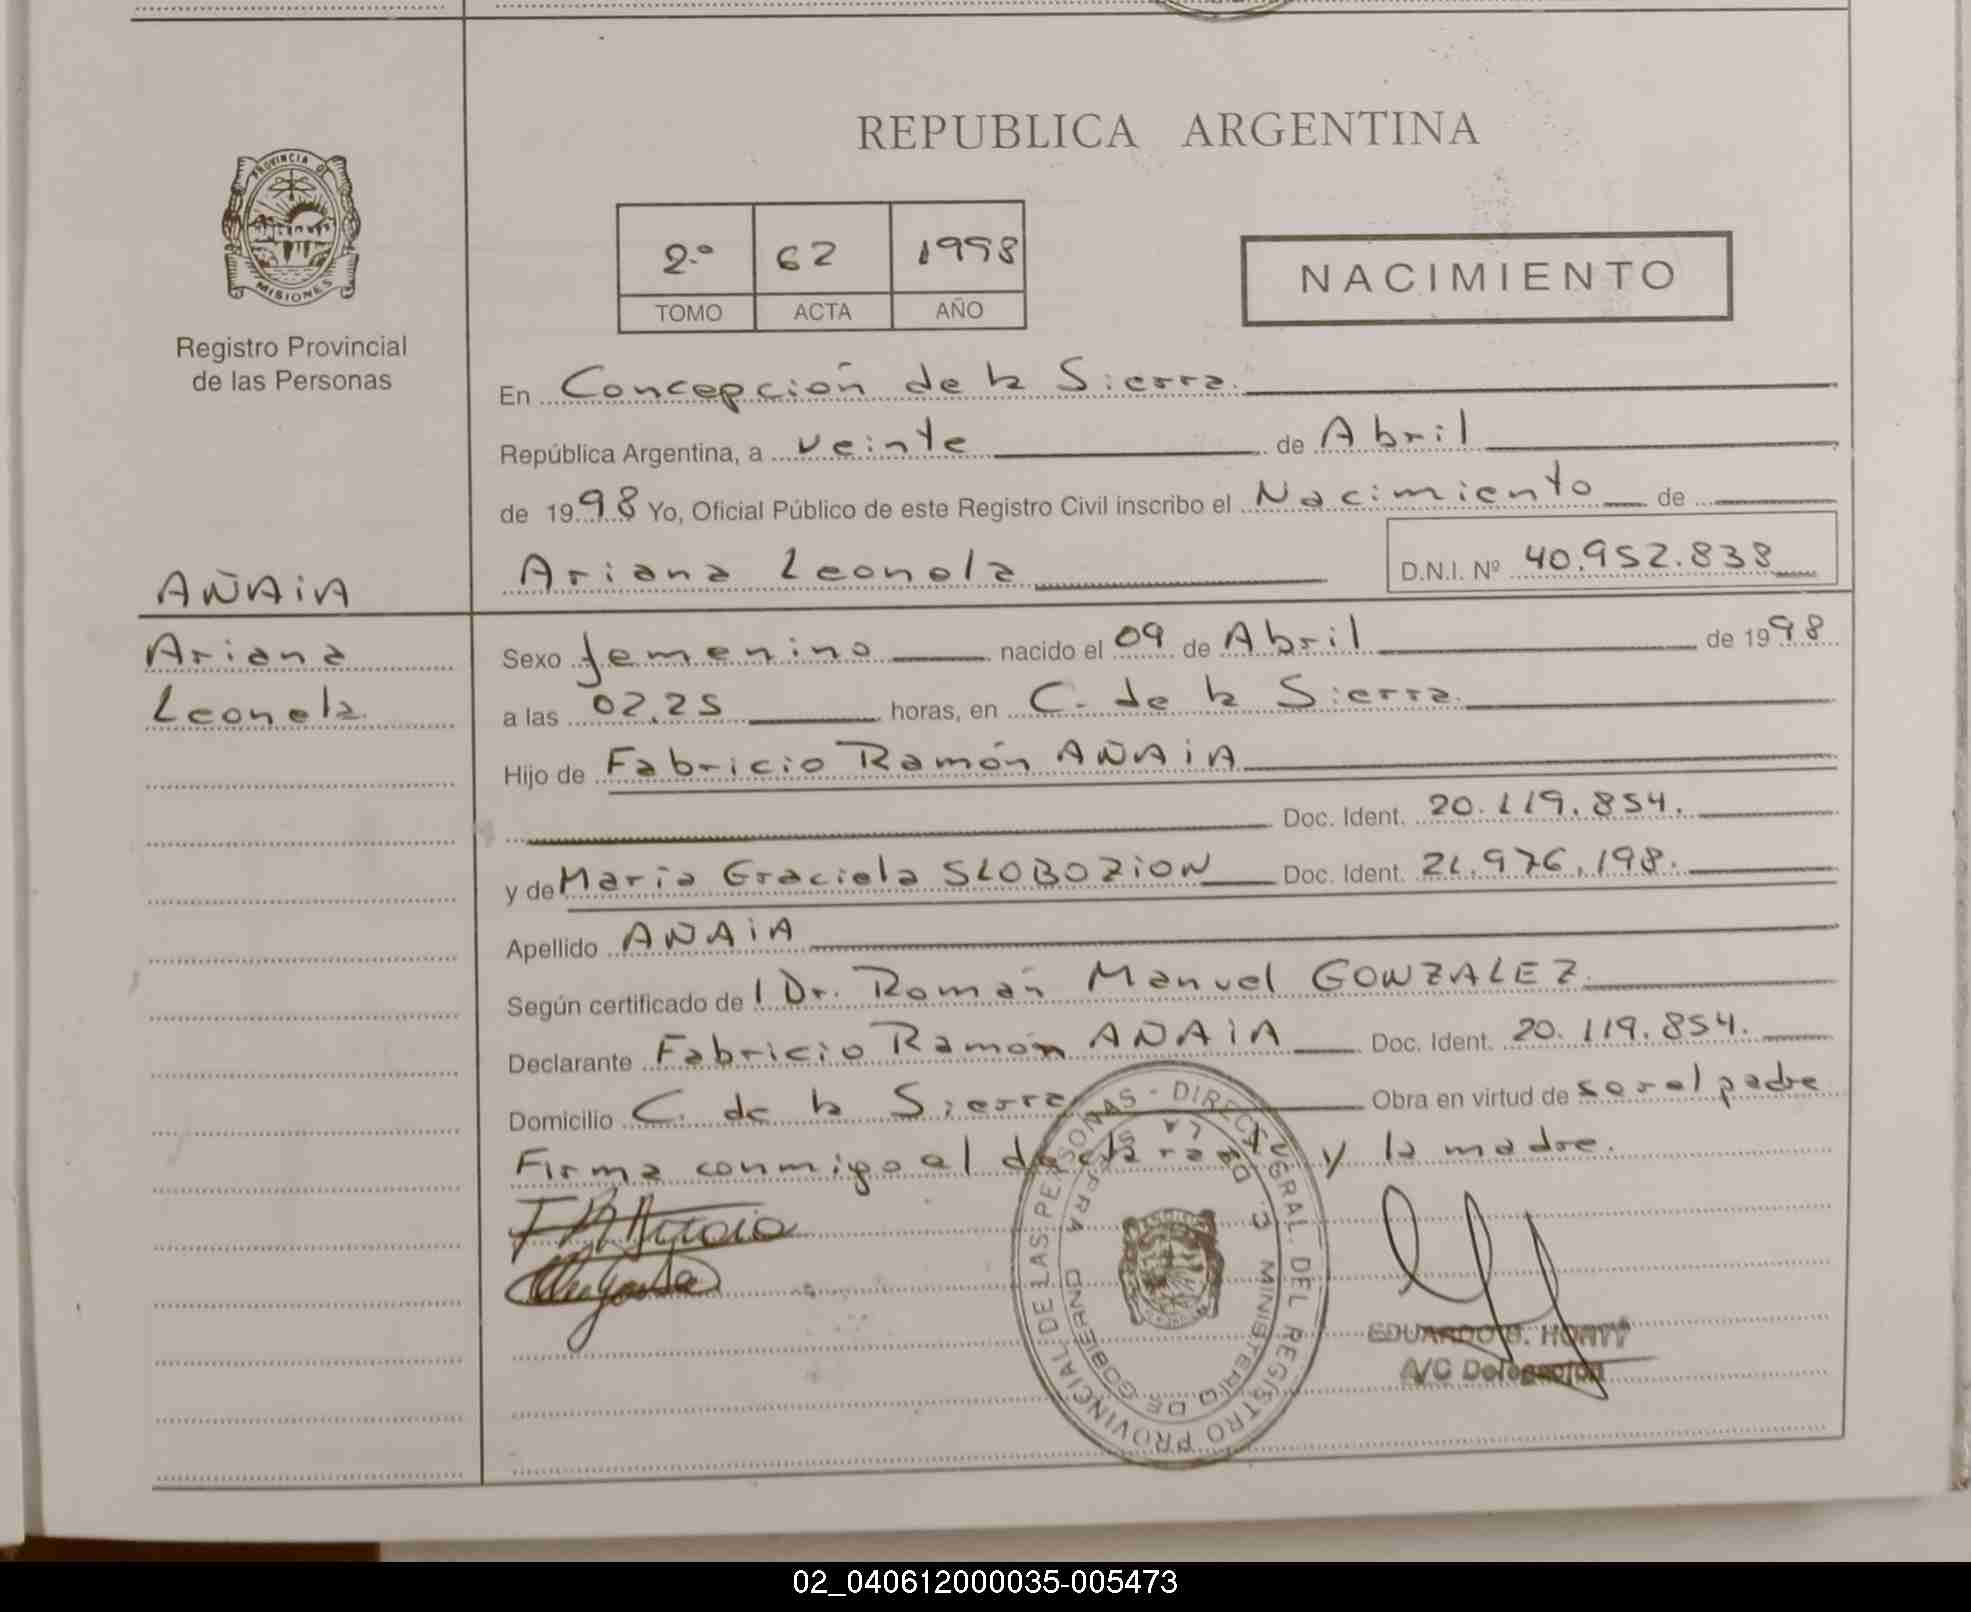 REPUBLICA ARGENTINA
PROVINCIA DE
MISIONES
Registro Provincial
de las Personas
2.º 62 1998
TOMO ACTA AÑO
NACIMIENTO
En Concepción de la Sierra.
República Argentina, a veinte de Abril
de 1998 Yo, Oficial Público de este Registro Civil inscribo el Nacimiento de
Ariana Leonela
D.N.I. Nº 40.952.838
AÑAIA
Ariana
Leonela
Sexo femenino nacido el 09 de Abril de 1998
a las 02.25 horas, en C. de la Sierra.
Hijo de Fabricio Ramón AÑAIA
Doc. Ident. 20.119.854.
y de Maria Graciela SLOBOZION Doc. Ident. 21.976.198.
Apellido AÑAIA
Según certificado de l Dr. Román Manuel GONZALEZ.
Declarante Fabricio Ramón AÑAIA Doc. Ident. 20.119.854.
Domicilio C. de la Sierra Obra en virtud de ser el padre
Firma conmigo el declarante y la madre.
DIREC. GRAL. DEL REGISTRO PROVINCIAL DE LAS PERSONAS -
MINISTERIO DE GOBIERNO
EDUARDO
A/C Delegación
02_040612000035-005473